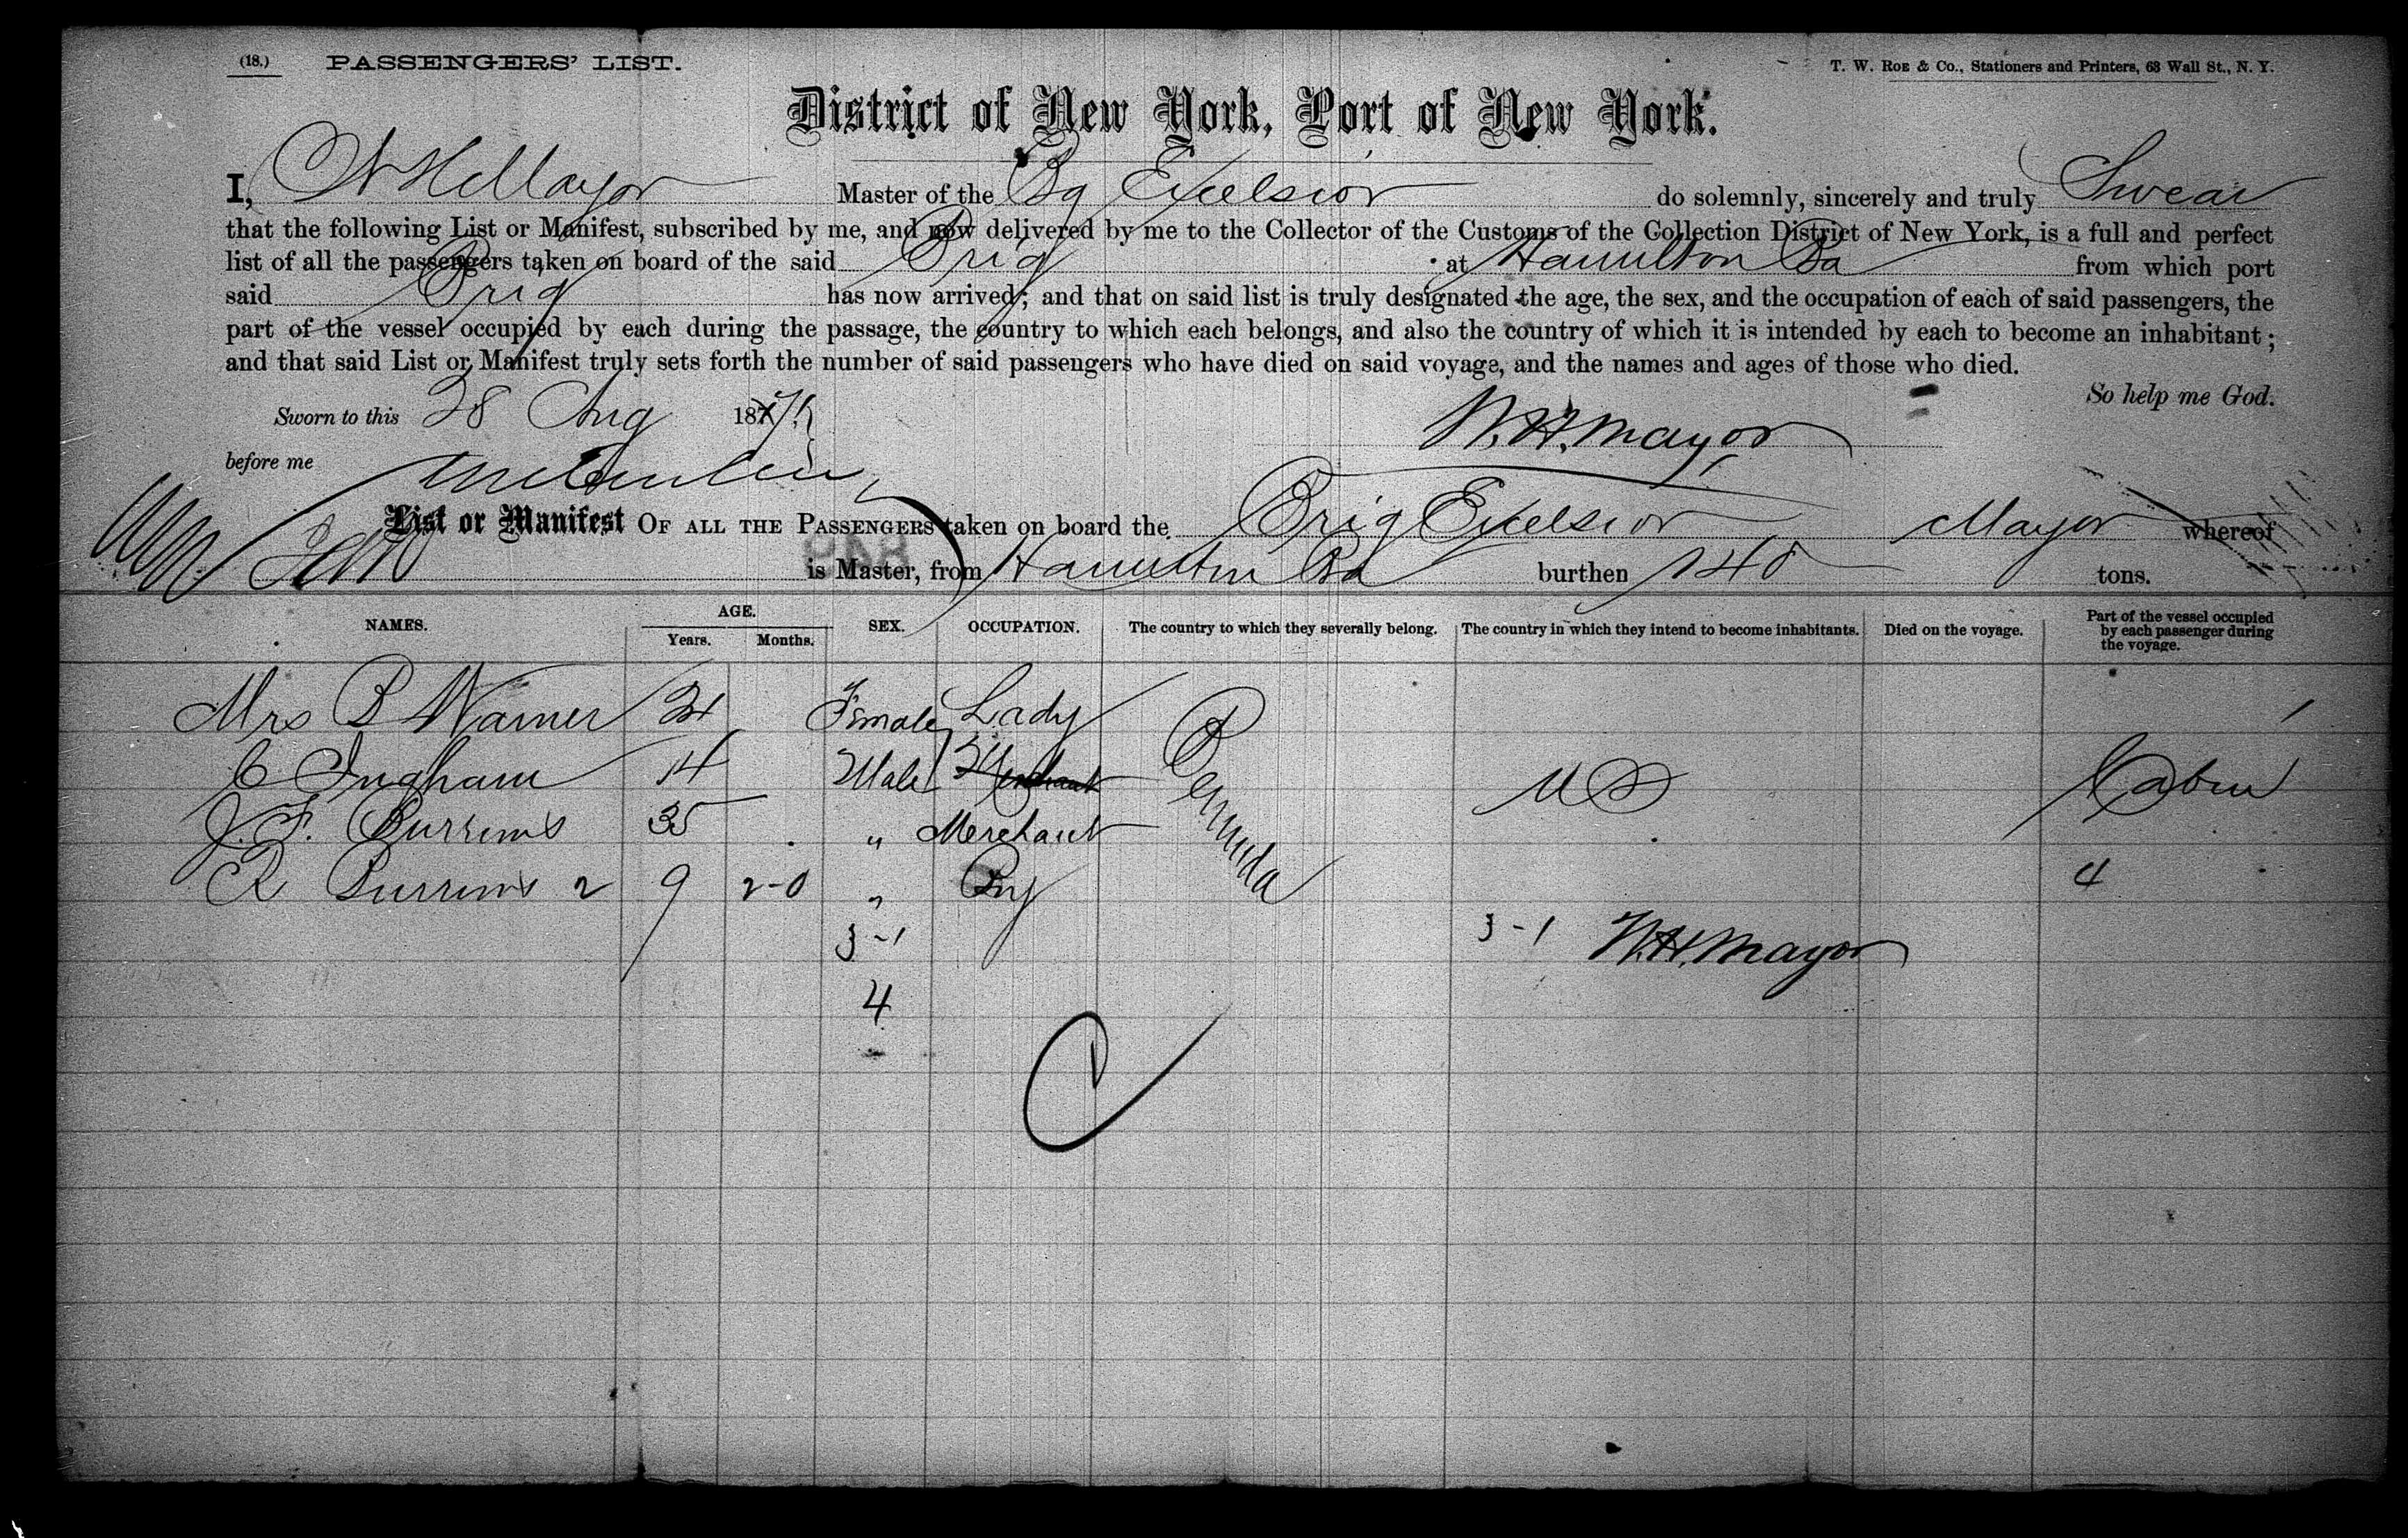 (18.) PASSENGERS' LIST. T. W. ROE & Co., Stationers and Printers, 63 Wall St., N. Y.
District of New York, Port of New York.
I, W H Mayor Master of the Bg Excelsior do solemnly, sincerely and truly Swear
that the following List or Manifest, subscribed by me, and now delivered by me to the Collector of the Customs of the Collection District of New York, is a full and perfect
list of all the passengers taken on board of the said Brig at Hamilton Ba from which port
said Brig has now arrived; and that on said list is truly designated the age, the sex, and the occupation of each of said passengers, the
part of the vessel occupied by each during the passage, the country to which each belongs, and also the country of which it is intended by each to become an inhabitant;
and that said List or Manifest truly sets forth the number of said passengers who have died on said voyage, and the names and ages of those who died.
So help me God.
Sworn to this 28 Aug 187
W. H. Mayor
before me
List or Manifest OF ALL THE PASSENGERS taken on board the Brig Excelsior Mayor whereof
is Master, from Hamilton Ba burthen 140 tons.
NAMES. AGE. Years. Months. SEX. OCCUPATION. The country to which they severally belong. The country in which they intend to become inhabitants. Died on the voyage. Part of the vessel occupied by each passenger during the voyage.
Mrs B Warner 24 Female Lady
C Ingham 14 Male Merchant Bermuda U S Cabin
J. F. Burrows 35 " Merchant
R Burrows 2 9 2-0 " Boy 4
3-1 3-1 W. H. Mayor
4